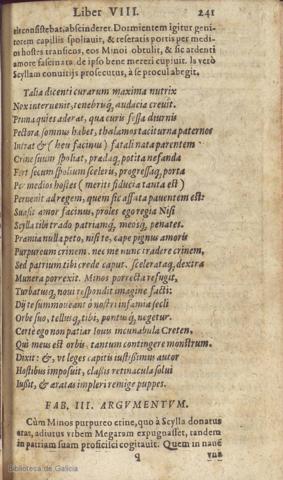 Liber VIII. 241
eis consistebat, abscinderet. Dormientem igitur geni-
torem capillis spoliauit, & reseratis portis per medi-
os hostes transiens, eos Minoi obtulit, & sic ardenti
amore fascinata de ipso bene mereri cupiuit. Is verò
Scyllam conuitijs prosecutus, à se procul abegit.
Talia dicenti curarum maxima nutrix
Nox interuenit, tenebrisq́; audacia creuit.
Prima quies aderat, qua curis fessa diurnis
Pectora somnus habet, thalamos taciturna paternos
Intrat & (heu facinus) fatali nata parentem
Crine suum spoliat, prædaq́; potita nefanda
Fert secum spolium sceleris, progressaq́; porta
Per medios hostes (meritis fiducia tanta est)
Peruenit ad regem, quem sic affata pauentem est:
Suasit amor facinus, proles ego regia Nisi
Scylla tibi trado patriamq́; meosq́; penates.
Præmia nulla peto, nisi te, cape pignus amoris
Purpureum crinem. nec me nunc tradere crinem,
Sed patrium tibi crede caput. scelerataq́; dextra
Munera porrexit. Minos porrecta refugit,
Turbatusq́; noui respondit imagine facti:
Dij te summoueant ô nostri infamia secli
Orbe suo, tellusq́; tibi, pontusq́; negetur.
Certè ego non patiar Iouis incunabula Creten,
Qui meus est orbis, tantum contingere monstrum.
Dixit: &, vt leges captis iustissimus autor
Hostibus imposuit, classis retinacula solui
Iussit, & æratas impleri remige puppes.
FAB. III. ARGVMENTVM.
Cùm Minos purpureo crine, quo à Scylla donatus
erat, adiutus vrbem Megaram expugnasset, tandem
in patriam suam proficisci cogitauit. Quem in naue
q vna
Biblioteca de Galicia